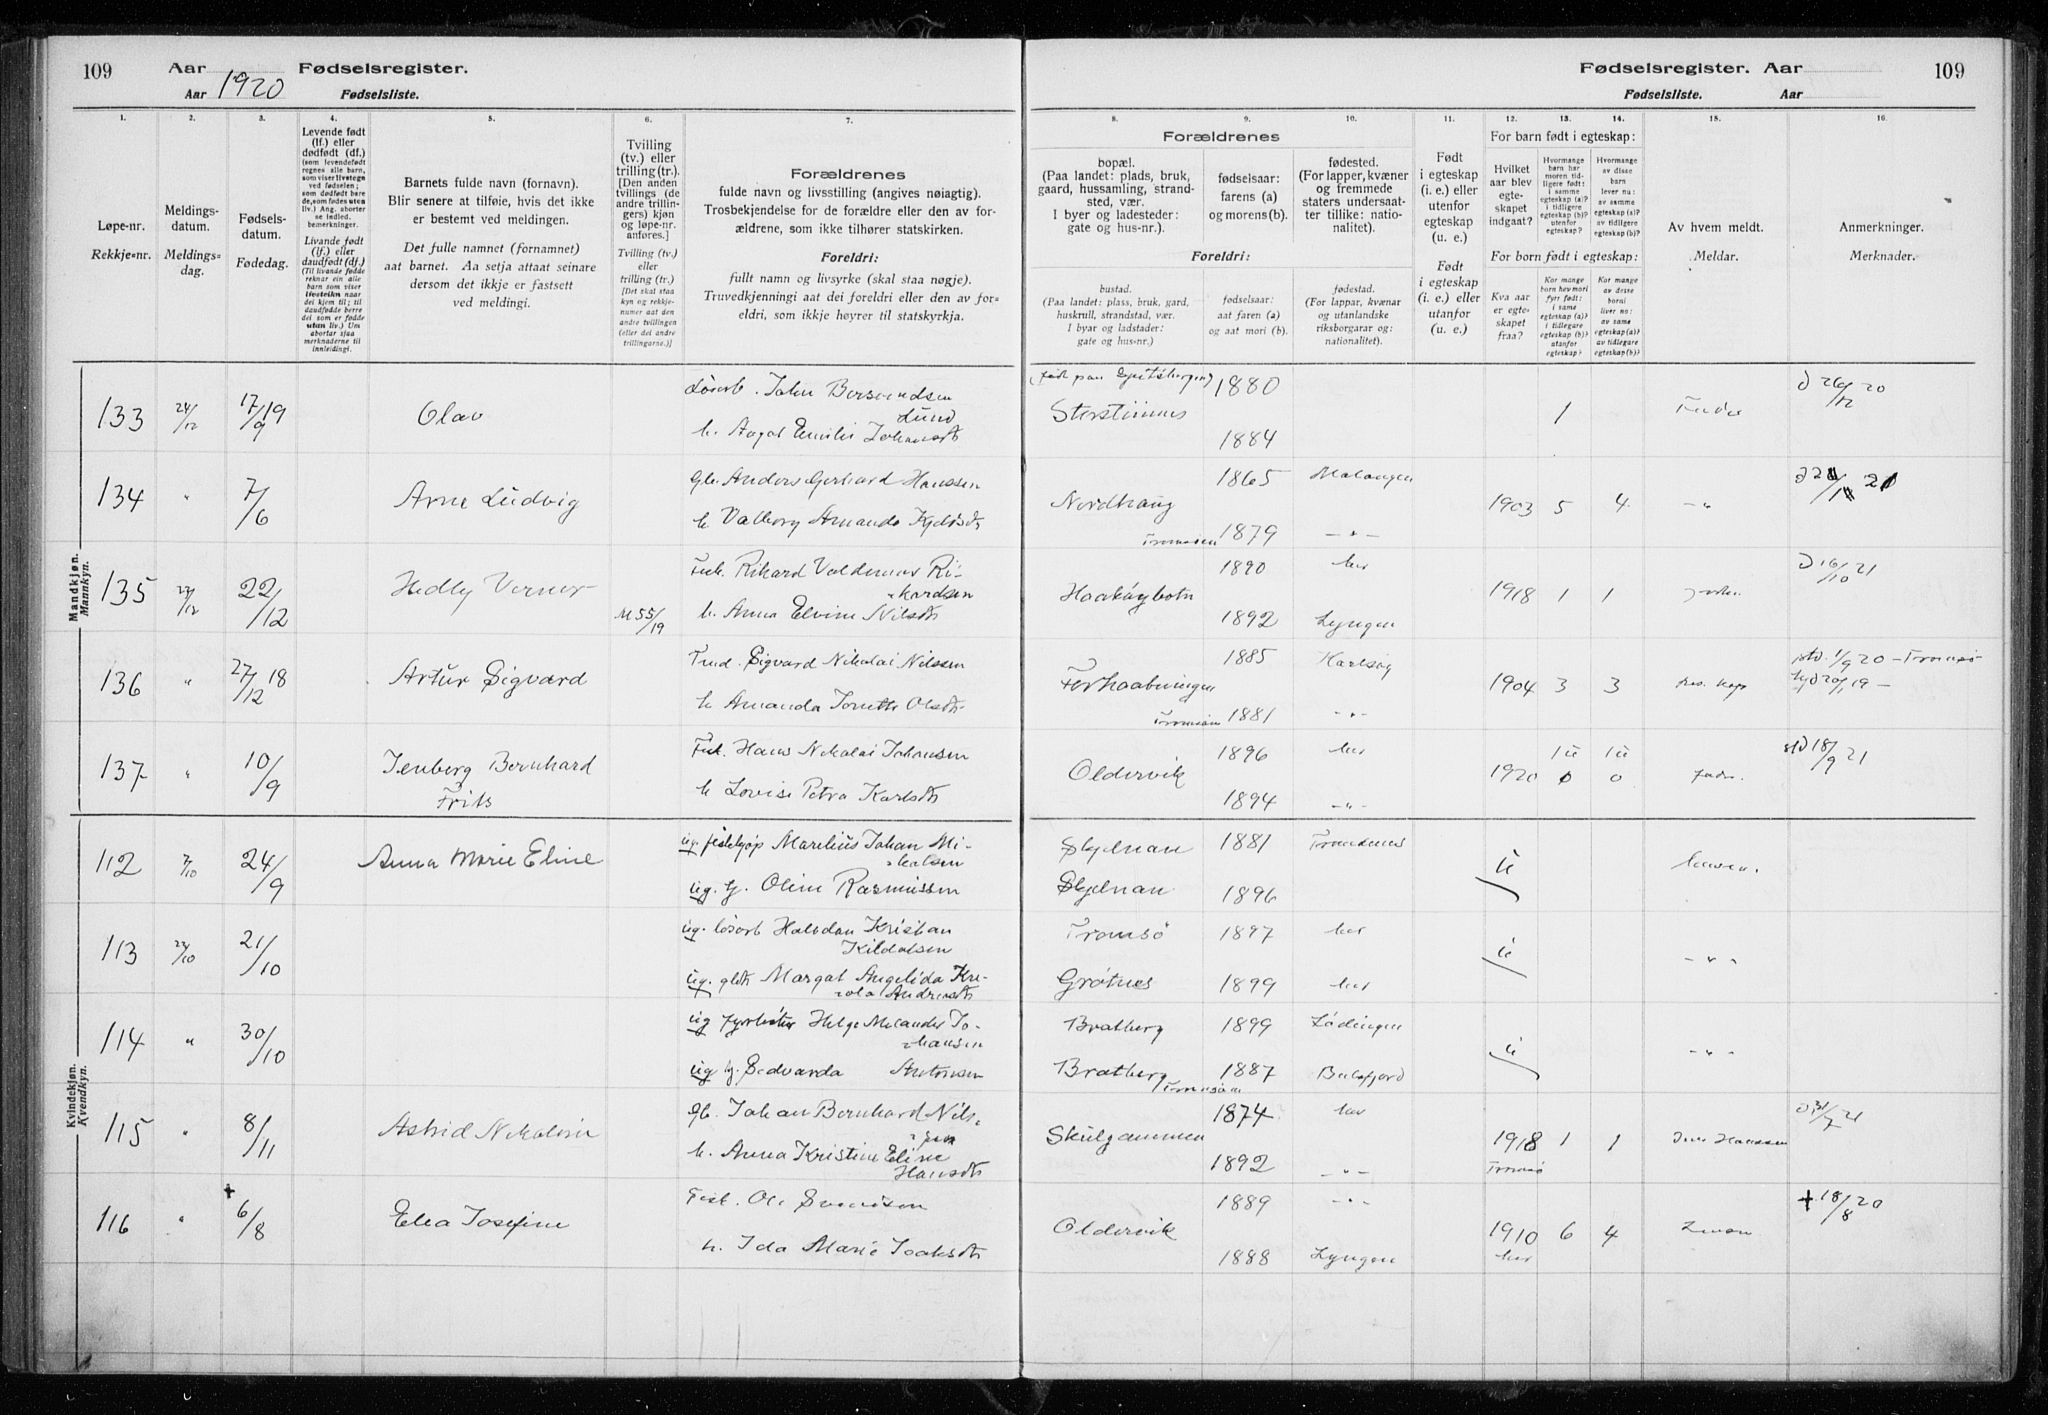 109 Aar Fødselsregister.
Aar 1920 Fødselsliste.
Fødselsregister. Aar 109
Fødselsliste. Aar
1. 2. 3. 4. 5. 6. 7.
8. 9. 10. 11. 12. 13. 14. 15. 16.
Løpe-nr.
Rekkje-nr.
Meldings-
datum.
Meldings-
dag.
Fødsels-
datum.
Fødedag.
Levende født
(lf.) eller
dødfødt (df.)
(som levendefødt
regnes alle barn,
som viser livstegn
ved fødselen;
som dødfødt bare
de, som fødes uten
liv.) Ang. aborter
se indled.
bemerkninger.
Livande født
(lf.) eller
daudfødt (df.)
(Til livande fødde
reknar ein alle
barn som viser
livsteikn naar
dei kjem til; til
daudfødde berre
dei som er fødde
utan liv.) Um
abortar sjaa
merknaderne til
innleidingi.
Barnets fulde navn (fornavn).
Blir senere at tilføie, hvis det ikke
er bestemt ved meldingen.
Det fulle namnet (fornamnet)
aat barnet. Aa setja attaat seinare
dersom det ikkje er fastsett
ved meldingi.
Tvilling
(tv.) eller
trilling (tr.).
[Den anden
tvillings (de
andre trillin-
gers) kjøn
og løpe-nr.
anføres.]
Tvilling (tv.)
eller
trilling (tr.)
[Det skal staa
kyn og rekkje-
numer aat den
andre tvillingen
(eller dei andre
trillingarne.)]
Forældrenes
fulde navn og livsstilling (angives nøiagtig).
Trosbekjendelse for de forældre eller den av for-
ældrene, som ikke tilhører statskirken.
Foreldri:
fullt namn og livsyrke (skal staa nøgje).
Truvedkjenningi aat dei foreldri eller den av for-
eldri, som ikkje høyrer til statskyrkja.
Forældrenes
bopæl.
(Paa landet: plads, bruk,
gaard, hussamling, strand-
sted, vær.
I byer og ladesteder:
gate og hus-nr.).
fødselsaar:
farens (a)
og morens (b).
fødested.
(For lapper, kvæner
og fremmede
staters undersaat-
ter tillike: natio-
nalitet).
Foreldri:
bustad.
(Paa landet: plass, bruk, gard,
huskrull, strandstad, vær.
I byar og ladstader:
gate og hus-nr.)
fødselsaar:
aat faren (a)
og aat mori (b).
fødestad.
(For lappar, kvænar
og utanlandske
riksborgarar og:
nationalitet).
Født
i egteskap
(i. e.) eller
utenfor
egteskap
(u. e.)
Født
i egteskap
(i. e.) eller
utanfor
(u. e.)
For barn født i egteskap:
Hvilket
aar blev
egte-
skapet
indgaat?
Hvormange
barn har
moren tid-
ligere født:
i samme
egteskap (a)?
i tidligere
egteskap (b)?
utenfor
egteskap?
Hvormange
av disse
barn
lever nu:
av samme
egteskap (a)?
av tidligere
egteskap (b)?
For born født i egteskap:
Kva aar
er egte-
skapet
fraa?
Kor mange
born hev mori
fyrr født:
i same
egteskap (a)?
i tidlegare
egteskap (b)?
utanfor
egteskap?
Kor mange
av desse
borni
liver nu:
av same
egteskap (a)?
av tidlegare
egteskap (b)?
Av hvem meldt.
Meldar.
Anmerkninger.
Merknader.
Mandkjøn.
Mannkyn.
133 24/12 17/9 19 Olav Løsarb. Johan
Lund
h. Emilie Johansdtr
1880
1884 1 D 26/12 20
134 " 7/6 Arne Ludvig Gbr. Anders Gerhard Hanssen
h. Valborg Amanda
Nordhaug
Tromsøen 1865 Malangen
1879 — " — 1903 5 4 — "
135 22/12 Hedley Verner M 55/19 Fisk. Rikard Valdemar Ri-
kardsen
h. Anna Elvine Nilsdtr
1890 her
1892 Lyngen 1918 1 1 D 16/10 21
136 " 27/12 18 Artur Sigvard Sigvard Nikolai Nilssen
h. Amanda Olsdtr
Tromsøen 1885 Karlsøy
1881 — " — 1904 3 3 1/9 20 — Tromsø
137 " 10/9 Jenberg Bernhard
Frits
Fisk. Hans Nikolai Johansen
h. Lovise Petra Karlsdtr
Oldervik 1896 her
1894 — " — 1920 1 u 1 u
0 0 fader. 18/9 21
Kvindekjøn.
Kvendkyn.
112 7/10 24/9 Anna Marie Eline ug. Marelius Johan Mi-
kalsen
ug. Oline Rasmussen
Skjelnan 1881 Trondenes
Skjelnan 1896 u
113 21/10 ug. løsarb Halvdan Kristian
Kildalsen
ug. gdtr Margot Angelida
Andreasdtr
Tromsø 1897 her
Grøtnes 1899 her u — " —
114 " 30/10 ug Helge Jo-
hansen
ug Edvarda Antonsen
Bratberg 1899 Lødingen
Bratberg
Tromsøen 1887 Balsfjord u — " —
115 " 8/11 Astrid Nikoline Gb. Johan Bernhard Nils-
sen
h. Anna Kristine Eline
Hansdtr
Skulgammen 1874 her
1892 — " — 1918 1 1 Hanssen
Tromsø
D 31/7 21
116 " + 6/8 Elea Josefine Fisk. Ole
h. Ida Marie
Oldervik 1889 — " —
1888 Lyngen 1910 6 4
her
+ 18/8 20